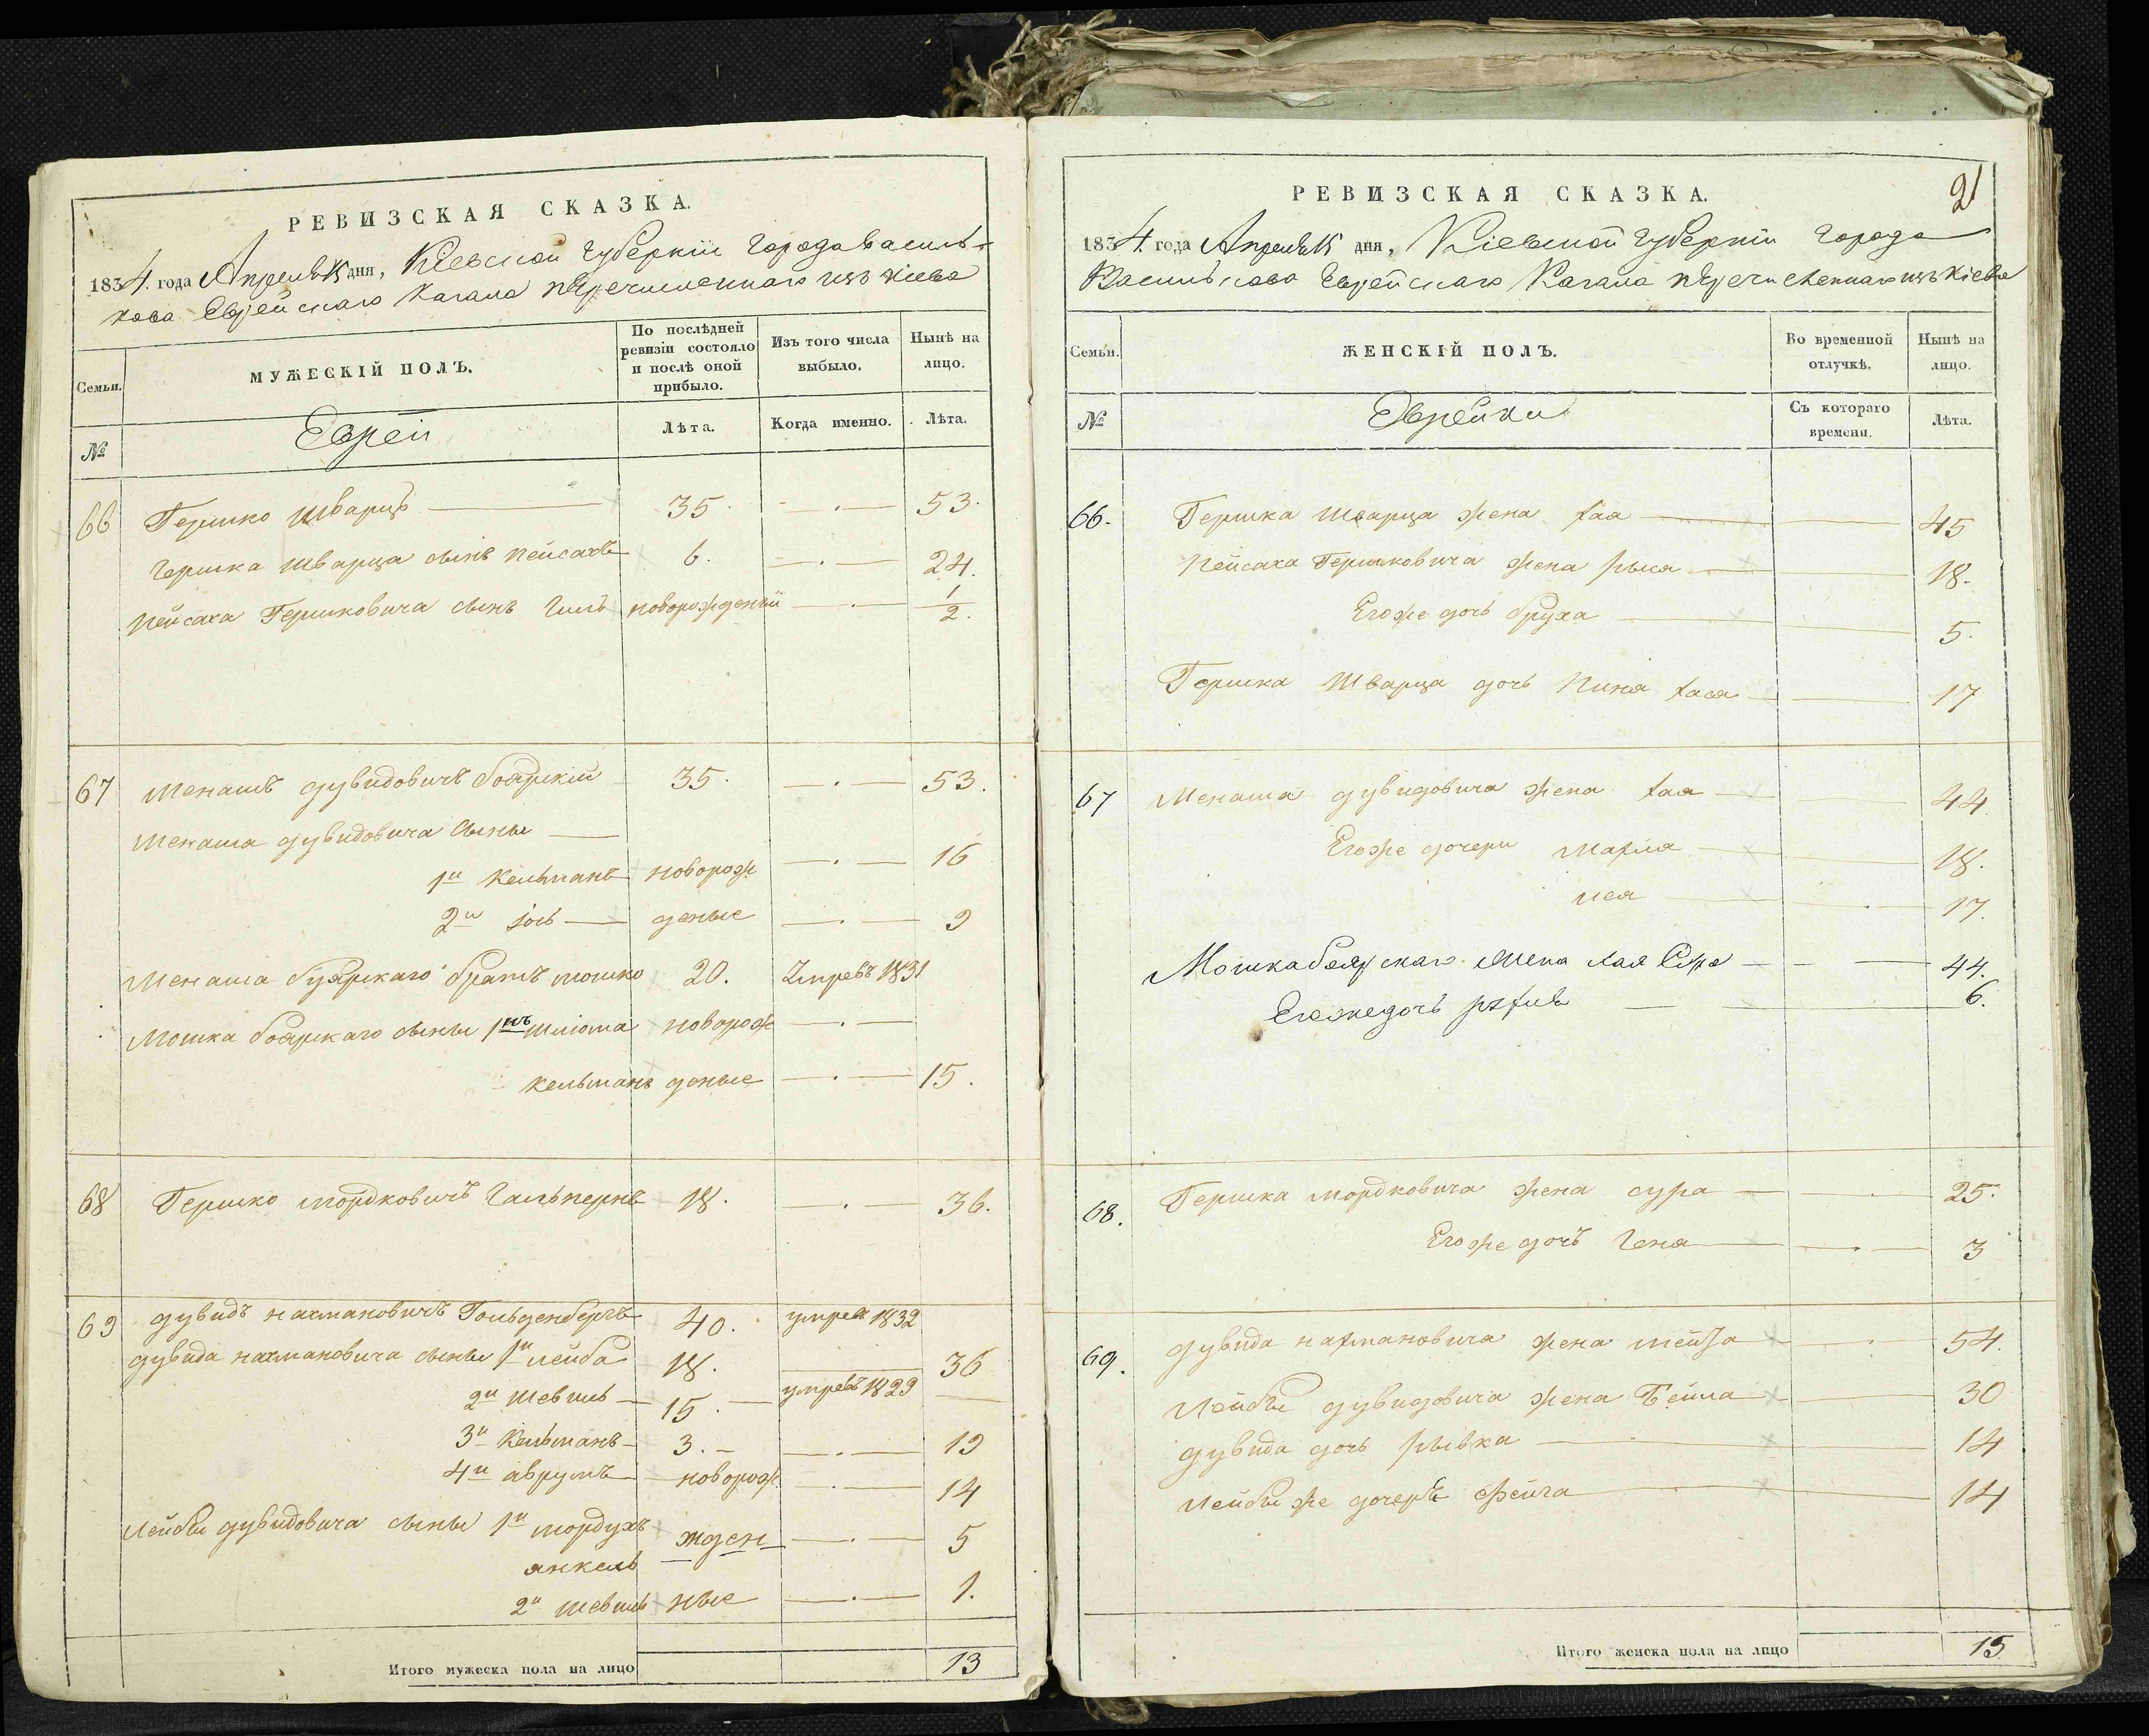 РЕВИЗСКАЯ СКАЗКА.
1834. года Апреля 15 дня, Кіевской Губерніи Города Василь-
кова Еврейскаго Кагала перечисленнаго изъ Кіева
Семьи.
МУЖЕСКІЙ ПОЛЪ.
По послѣдней ревизіи состояло и послѣ оной прибыло.
Изъ того числа выбыло.
Нынѣ на лицо.
№
Евреи
Лѣта.
Когда именно.
Лѣта.
66 Гершко Шварцъ 35. 53.
Гершка Шварца сынъ Пейсахъ 6. 24.
Пейсаха Гершковича сынъ новорожденый 1/2.
67 Менашъ Дувидовичъ Боярскій 35. 53.
Менаша Дувидовича сыны
1й Кельманъ новорож 16
2й Іось деные 9
Менаша Боярскаго братъ Мошко 20. Умревъ 1831
Мошка Боярскаго сыны 1й Шліома новорож
Кельманъ деные 15.
68 Гершко Мордковичъ Гальпернъ 18. 36.
69 Дувидъ Нахмановичъ Гольденбергъ 40. умревъ 1832
Дувида Нахмановича сыны 1й Лейба 18. 36
2й Шевшль 15. умревъ 1829
3й Кельманъ 3. 19
4й Аврумъ новорож 14
Лейбы Дувидовича сыны 1й Мордухъ жден 5
Янкель
2й Шевшль ные 1.
Итого мужеска пола на лицо 13
РЕВИЗСКАЯ СКАЗКА.
21
1834. года Апреля 15 дня, Кіевской Губерніи Города
Василькова Еврейскаго Кагала перечисленнаго изъ Кіева
Семьи.
ЖЕНСКІЙ ПОЛЪ.
Во временной отлучкѣ.
Нынѣ на лицо.
№
Еврейки
Съ котораго времени.
Лѣта.
66. Гершка Шварца жена Хая 45
Пейсаха Гершковича жена Рыся 18.
Егоже дочь Бруха 5.
Гершка Шварца дочь Хася 17
67 Менаша Дувидовича жена Хая 44
Егоже дочери Махля 18.
17.
Мошка Боярскаго жена Хая Сура 44.
Егоже дочь 6.
68. Гершка Мордковича жена Сура 25.
Егоже дочь Геня 3
69. Дувида Нахмановича жена 54.
Лейбы Дувидовича жена Бейла 30
Дувида дочь Рывка 14
Лейбы же дочеръ Фейга 14
Итого женска пола на лицо 15